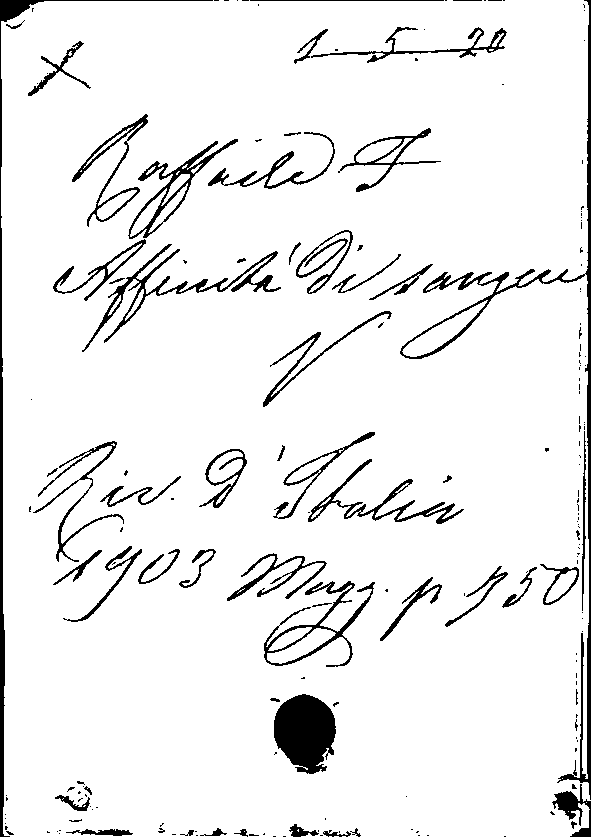 X
1. 5. 20
Raffaele F
Affinità di sangue
V
Riv. D'Italia
1903 Magg. p 750